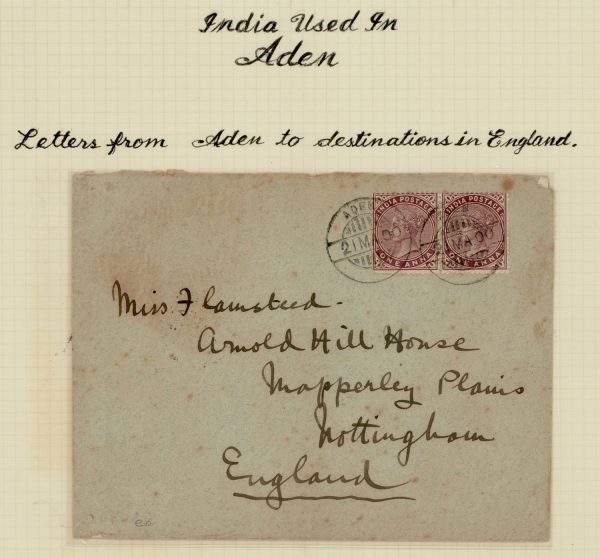 India Used In
Aden
Letters from Aden to destinations in England.
INDIA POSTAGE INDIA POSTAGE
ADEN
21 MA 00 MA 00
ONE ANNA ONE ANNA
Miss Flamsteed -
Arnold Hill House
Mapperley Plains
Nottingham
England